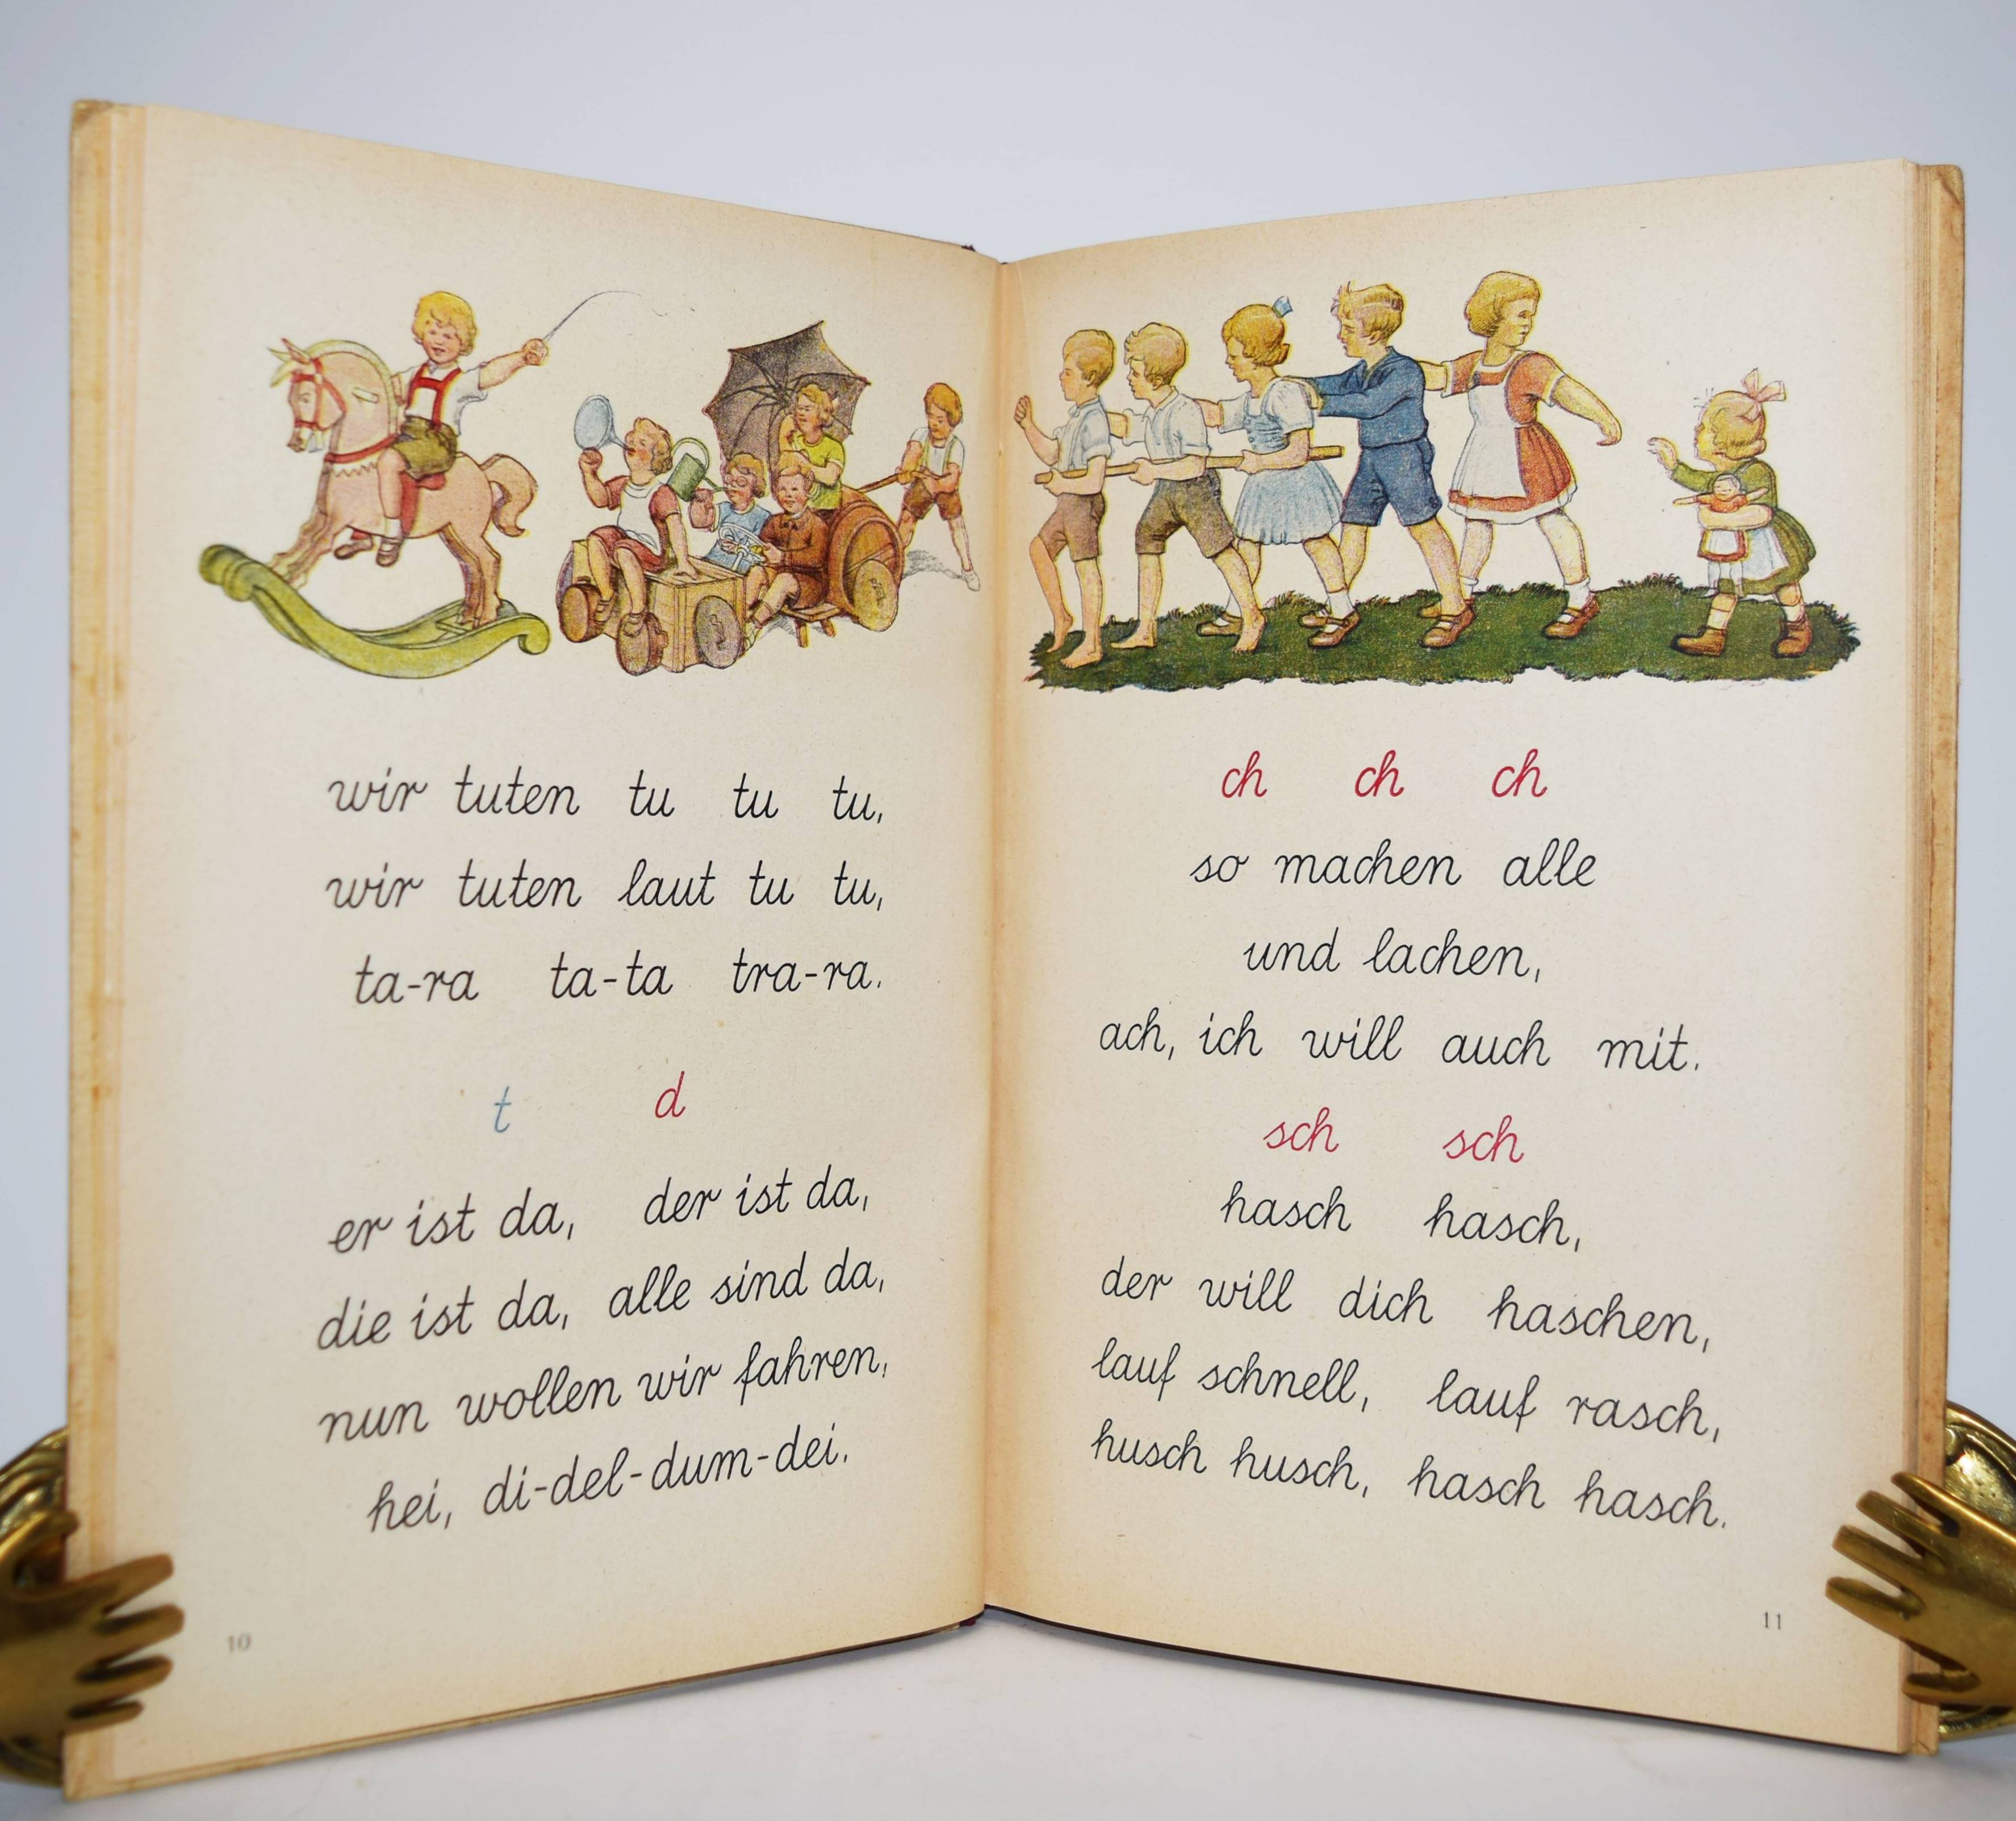 wir tuten tu tu tu,
wir tuten laut tu tu,
ta-ra ta-ta tra-ra.
t d
er ist da, der ist da,
die ist da, alle sind da,
nun wollen wir fahren,
hei, di-del-dum-dei.
10
ch ch ch
so machen alle
und lachen,
ach, ich will auch mit.
sch sch
hasch hasch,
der will dich haschen,
lauf schnell, lauf rasch,
husch husch, hasch hasch.
11